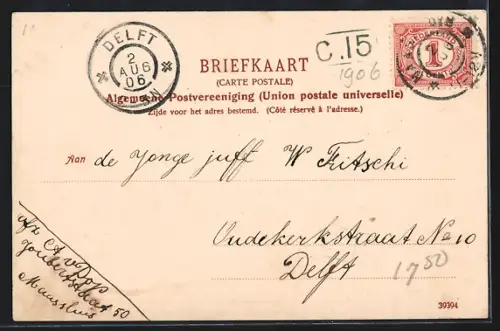 DELFT
2
AUG
06
C.15
1906
BRIEFKAART
(CARTE POSTALE)
Algemeene Postvereeniging (Union postale universelle)
Zijde voor het adres bestemd. (Côté réservé à l'adresse.)
NEDERLAND
1
CENT
Aan de Jonge juff W Fritschi
Oudekerkstraat No 10
Delft
17 50
afz
Joubertstraat 50
Maassluis
39394